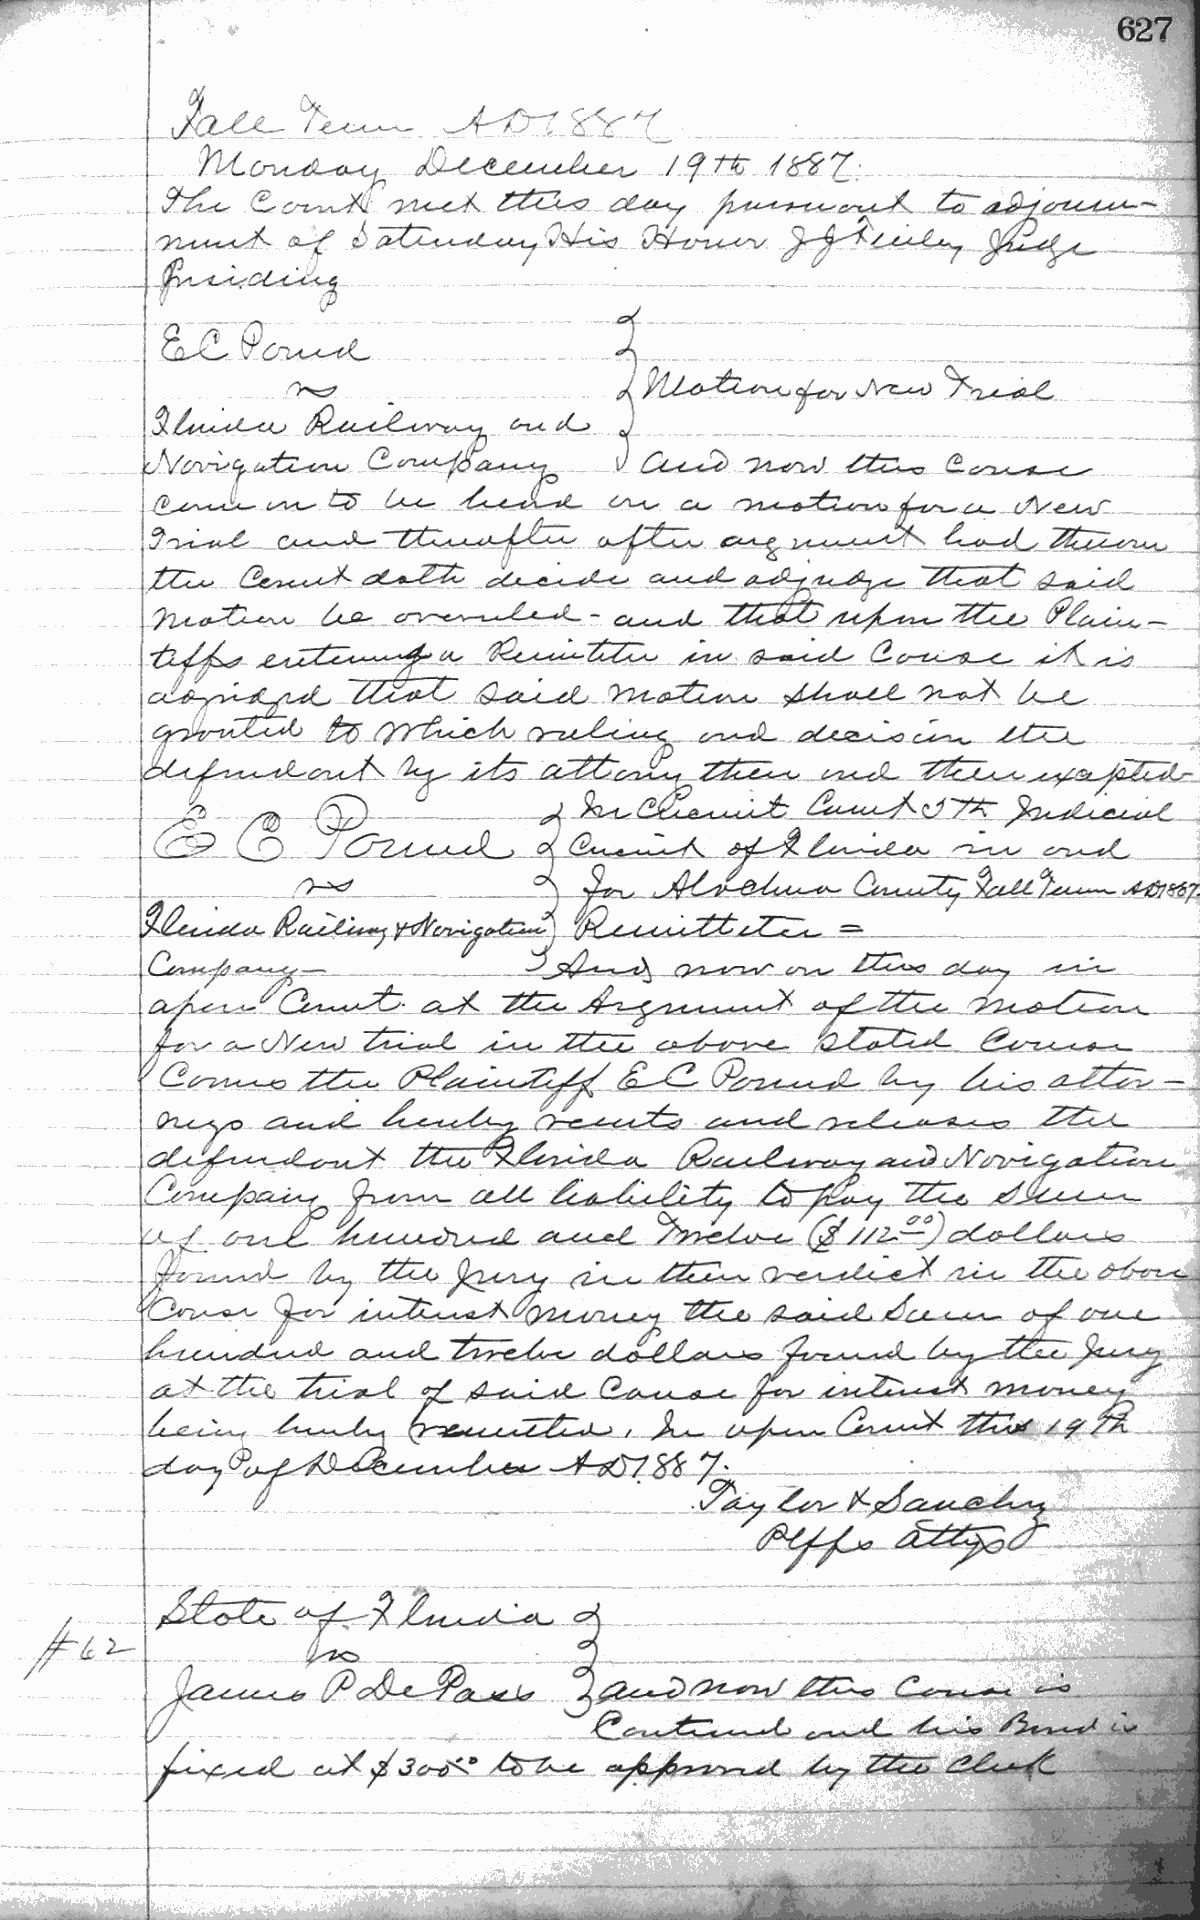 627
Fall Term AD 1887
Monday December 19th 1887.
The Court met this day pursuant to adjourn-
ment of Saturday His Honor J J Finley Judge
Presiding
E C Pound
vs
Florida Railway and
Navigation Company
Motion for New Trial
and now this Cause
came on to be heard on a motion for a New
Trial and thereafter after argument had thereon
the Court doth decide and adjudge that said
motion be overruled - and that upon the Plain-
tiffs entering a Remititer in said Cause it is
adjudged that said motion shall not be
granted to which ruling and decision the
defendant by its attorny then and there excepted
E C Pound
vs
Florida Railway & Navigation
Company -
In Circuit Court 5th Judicial
Circuit of Florida in and
for Alachua County Fall Term AD 1887.
Remitteter =
And now on this day in
open Court at the Argument of the motion
for a New trial in the above stated Cause
Comes the Plaintiff E C Pound by his attor-
neys and hereby remits and releases the
defendant the Florida Railway and Navigation
Company from all liability to pay the Sum
of one hundred and Twelve ($112.00) dollars
found by the Jury in their verdict in the above
Cause for interest money the said Sum of one
hundred and twelve dollars found by the Jury
at the trial of said Cause for interest money
being hereby remitted. In open Court this 19th
day of December AD 1887.
Taylor & Sanchez
Plffs Attys
#62
State of Florida
vs
James P De Pass
and now this Cause is
Continued and his Bond is
fixed at $300.00 to be approved by the Clerk